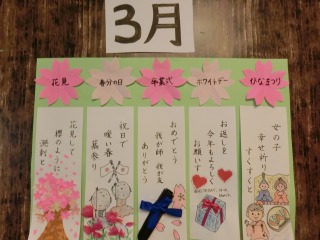 3月
ひなまつり
女の子
幸せ祈り
すくすくと
ホワイトデー
お返しを
今年もよろしく
お願いす
卒業式
おめでとう
我が師我が友
ありがとう
春分の日
祝日で
暖い春
墓参り
花見
花見して
桜のように